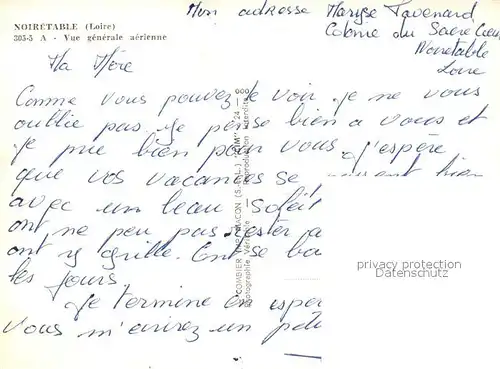 NOIRETABLE (Loire)
305-5 A - Vue générale aérienne
Mon adresse Maryse Tavenard
Colonie du Sacré Cœur
Noiretable
Loire
Ma Mère
Comme vous pouvez le voir je ne vous
oublie pas. Je pense bien à vous et
je prie bien pour vous. J'espère
que vos vacances se
avec un beau soleil
ont ne peu pas rester a
ont y grille. Ont se ba
les jours.
Je termine en esper
vous m'ecrirez un peti
COMBIER IMP. MACON (S.-&-L.) "CIM"
Photographie Véritable
Reproduction interdite
privacy protection
Datenschutz